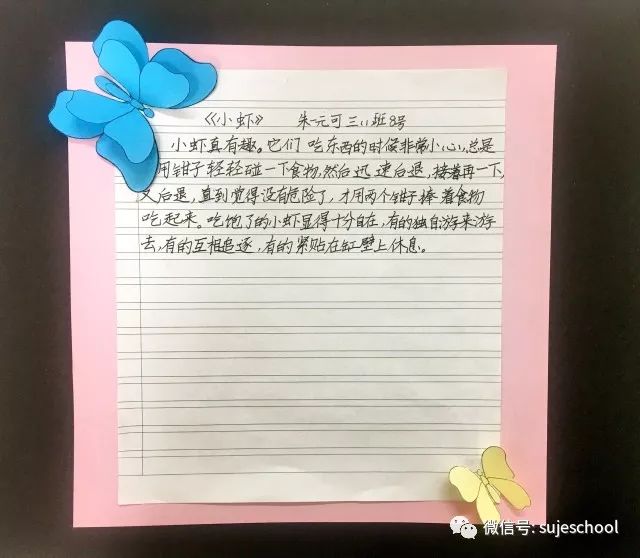 《小虾》 朱元可 三(1)班 8号
小虾真有趣。它们吃东西的时候非常小心,总是
用钳子轻轻碰一下食物,然后迅速后退,接着再一下,
又后退,直到觉得没有危险了,才用两个钳子捧着食物
吃起来。吃饱了的小虾显得十分自在,有的独自游来游
去,有的互相追逐,有的紧贴在缸壁上休息。
微信号: sujeschool